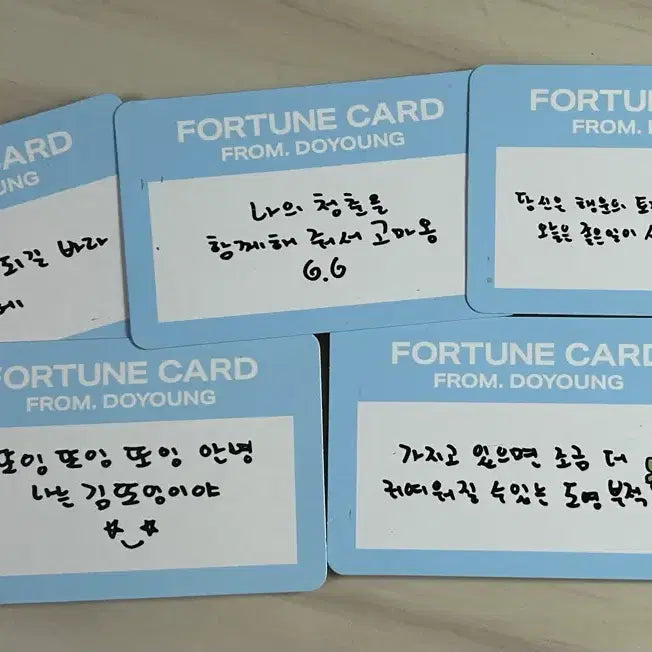 CARD
UNG
되길 바라
에
FORTUNE CARD
FROM. DOYOUNG
나의 청춘을
함께해 줘서 고마웅
6.6
FORTU
FROM.
당신은 행운의 토
오늘은 좋은일이
FORTUNE CARD
FROM. DOYOUNG
또잉 또잉 또잉 안녕
나는 김또영이야
FORTUNE CARD
FROM. DOYOUNG
가지고 있으면 조금 더
귀여워질 수있는 도영 부적